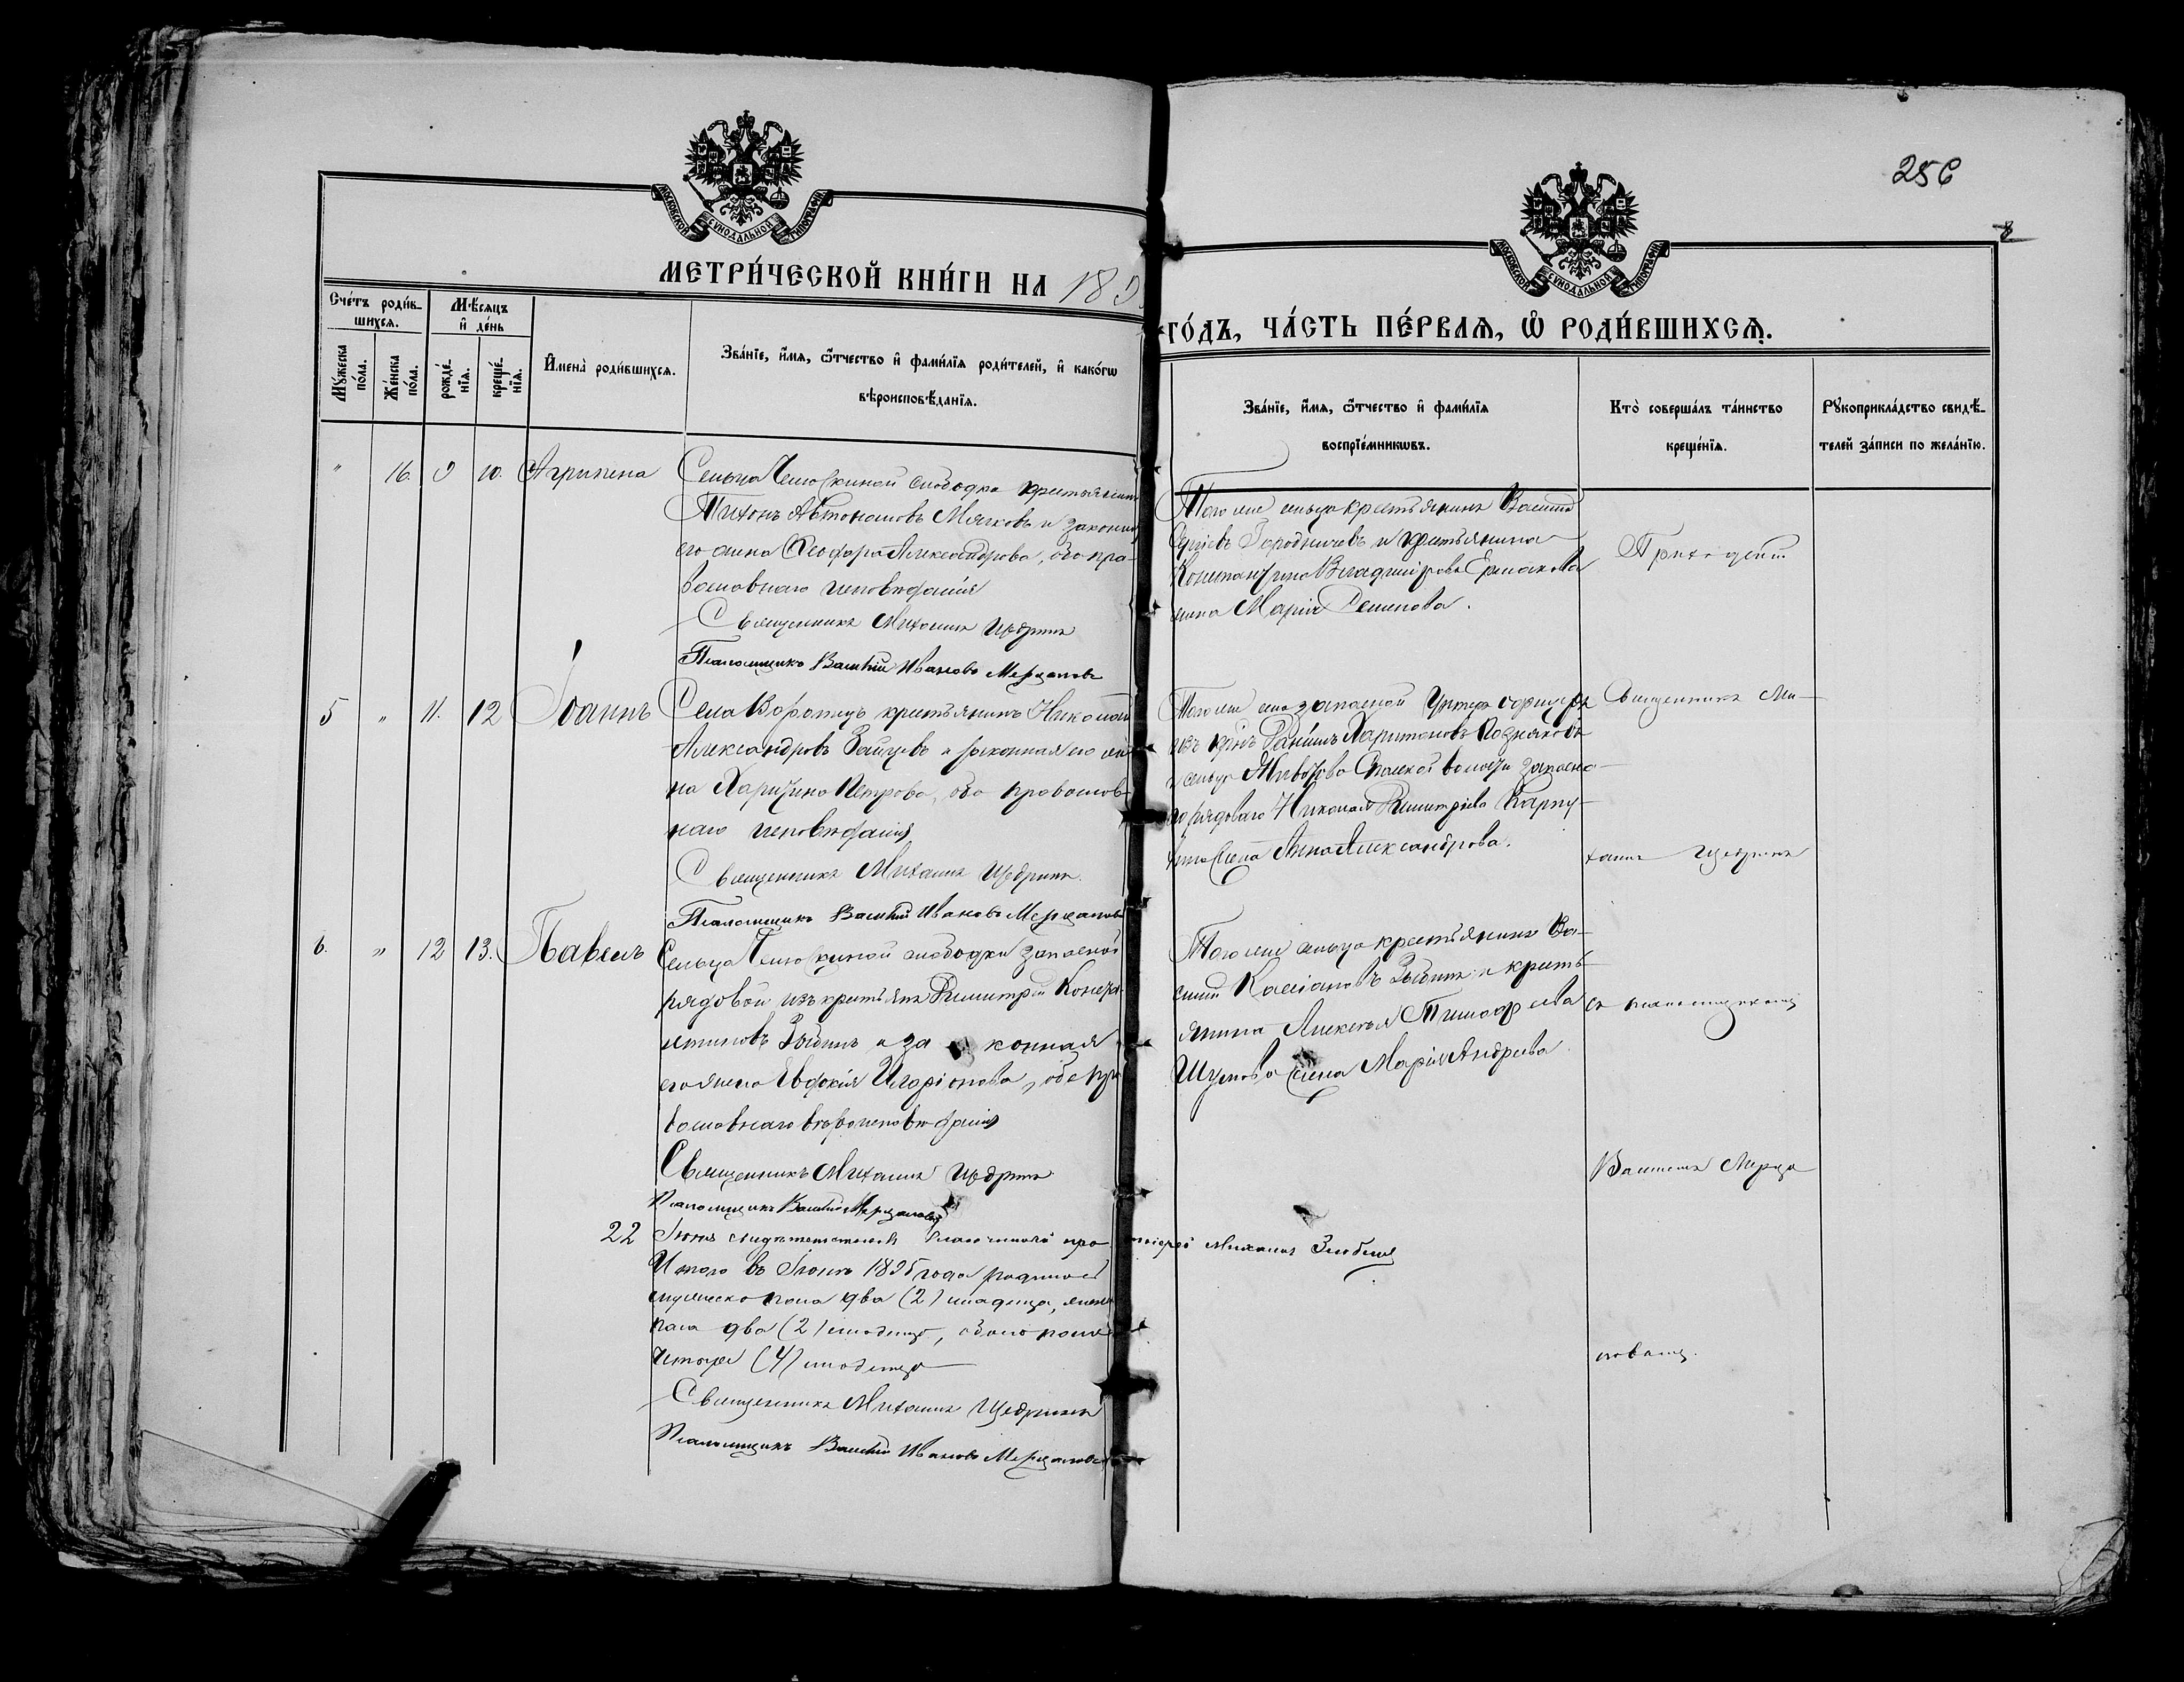 256
8
МОСКОВСКОЙ СѴНОДАЛЬНОЙ ТИПОГРАФІИ
МОСКОВСКОЙ СѴНОДАЛЬНОЙ ТИПОГРАФІИ
МЕТРИ́ЧЕСКОЙ КНИ́ГИ НА 189
ГО́ДЪ, ЧА́СТЬ ПЕ́РВАѦ, Ѡ РОДИ́ВШИХСѦ.
Сче́тъ роди́в-
шихсѧ.
Мꙋжеска по́ла.
Же́нска по́ла.
Мѣ́сѧцъ и де́нь
рожде́-
нїѧ.
креще́-
нїѧ.
Имена̀ роди́вшихсѧ.
Зва́нїе, и́мѧ, ѻ҆́тчество и҆ фами́лїѧ роди́телей, и҆ како́гѡ
вѣроисповѣ́данїѧ.
Зва́нїе, и́мѧ, ѻ҆́тчество и҆ фами́лїѧ
воспрїе́мникѡвъ.
Кто̀ соверша́лъ та́инство
креще́нїѧ.
Рꙋкоприкла́дство свидѣ́-
телей за́писи по жела́нїю.
" 16. 9 10. Агрипена
Сельца слободки крестьянинъ
Тихонъ Автономовъ Мягковъ и законная
его жена Александрова, оба пра-
вославнаго исповѣданія
Священникъ Михаилъ Щедринъ
Псаломщикъ Василій Ивановъ Мерцаловъ
Того же сельца крестьянинъ Василій
Сергіевъ Городничевъ и крестьянина
Константина Владимірова Ермакова
жена Марія Семенова.
Приходскій
5 " 11. 12 Іоаннъ
Села крестьянинъ Николай
Александровъ Зайцевъ и законная его же-
на Харитина Петрова, оба православ-
наго исповѣданія
Священникъ Михаилъ Щедринъ.
Псаломщикъ Василій Ивановъ Мерцаловъ
Того же села запасной унтеръ офицеръ
изъ крест. Даніилъ Харитоновъ Позняковъ
и сельца Спасской волости запасна-
го рядоваго Николая Димитріева Карпу-
хина жена Анна Александрова.
Священникъ Ми-
хаилъ Щедринъ
6. " 12 13. Павелъ
Сельца слободки запасной
рядовой изъ крестьянъ Димитрій Конста-
нтиновъ Зыбинъ и законная
его жена Евдокія Иларіонова, оба пра-
вославнаго вѣроисповѣданія
Священникъ Михаилъ Щедринъ
Псаломщикъ Василій Мерцаловъ
Того же сельца крестьянинъ Ва-
силій Кассіановъ Зыбинъ и кресть-
янина Алексѣя Тимофеева
Шумова жена Марія Андреева.
съ псаломщикомъ
Василіемъ Мерца-
ловымъ.
22 Іюня свидѣтельствовалъ благочинный протоіерей Михаилъ
Итого въ Іюнѣ 1895 года родилось
мужеска пола два (2) младенца, женска
пола два (2) младенца, обоего пола
четыре (4) младенца
Священникъ Михаилъ Щедринъ
Псаломщикъ Василій Ивановъ Мерцаловъ